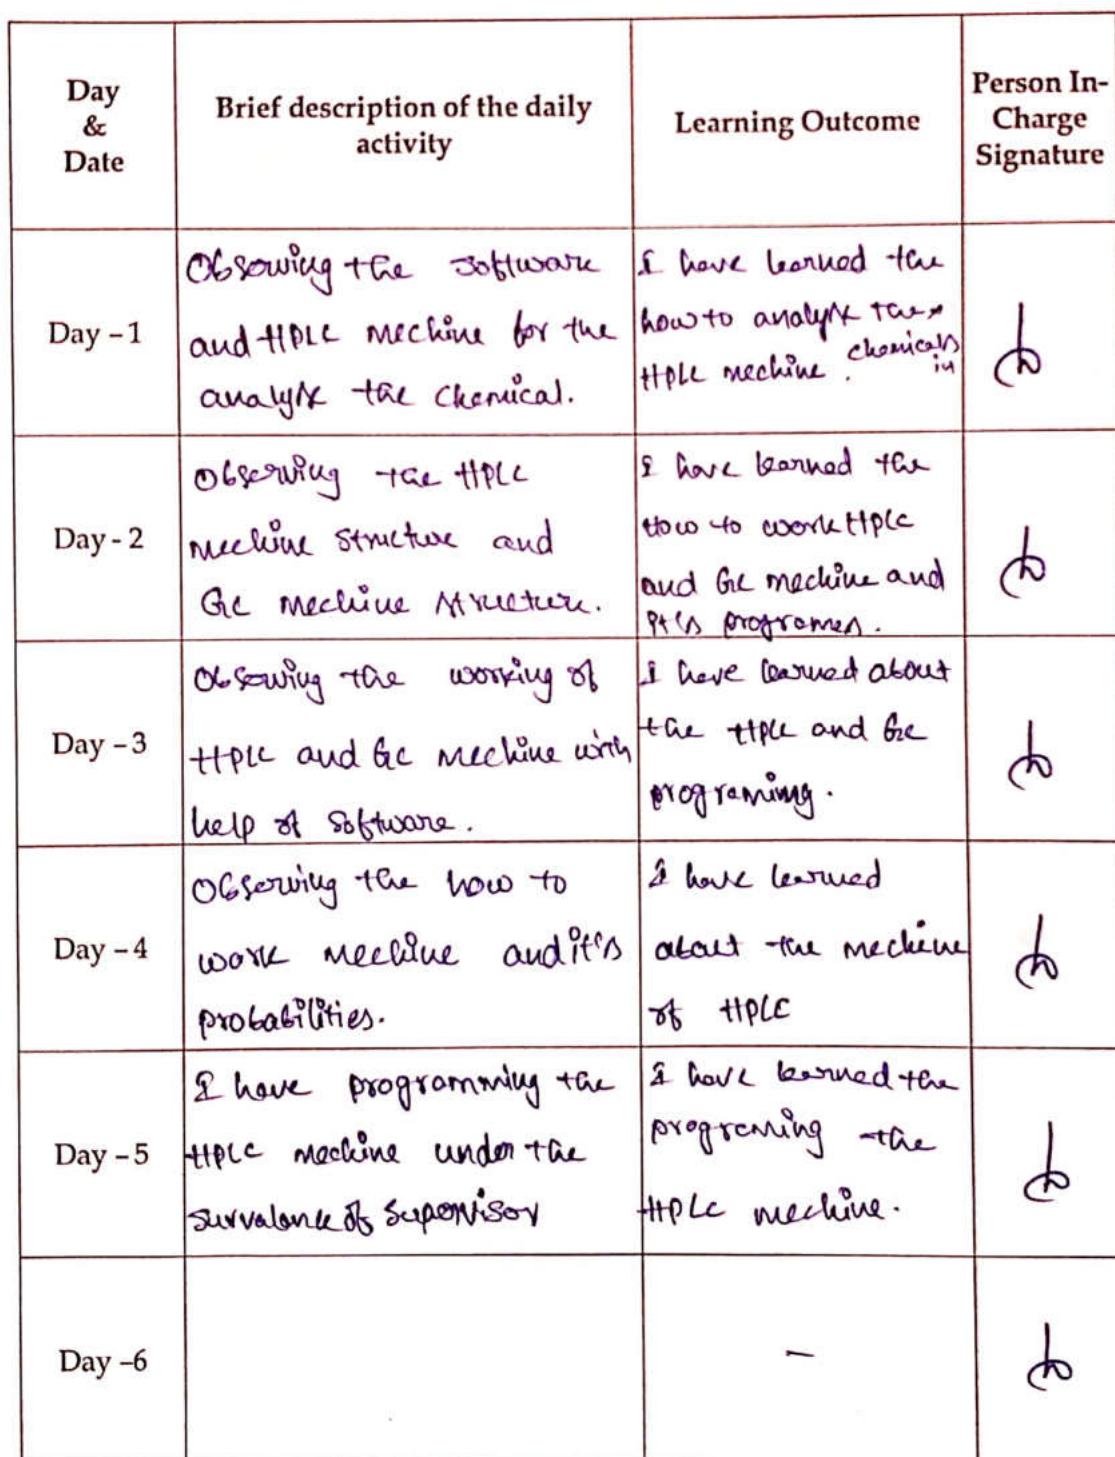 Day & Date
Brief description of the daily activity
Learning Outcome
Person In-Charge Signature
Day – 1
Observing the software
and HPLC mechine for the
analyse the chemical.
I have learned the
how to analyse the
chemicals in
HPLC mechine.
Day - 2
Observing the HPLC
mechine structure and
GC mechine structure.
I have learned the
How to work HPLC
and GC mechine and
it's programes.
Day – 3
Observing the working of
HPLC and GC mechine with
help of software.
I have learned about
the HPLC and GC
programing.
Day – 4
Observing the how to
work mechine and it's
probabilities.
I have learned
about the mechine
of HPLC
Day – 5
I have programming the
HPLC mechine under the
survalance of supervisor
I have learned the
programing the
HPLC mechine.
Day –6
–